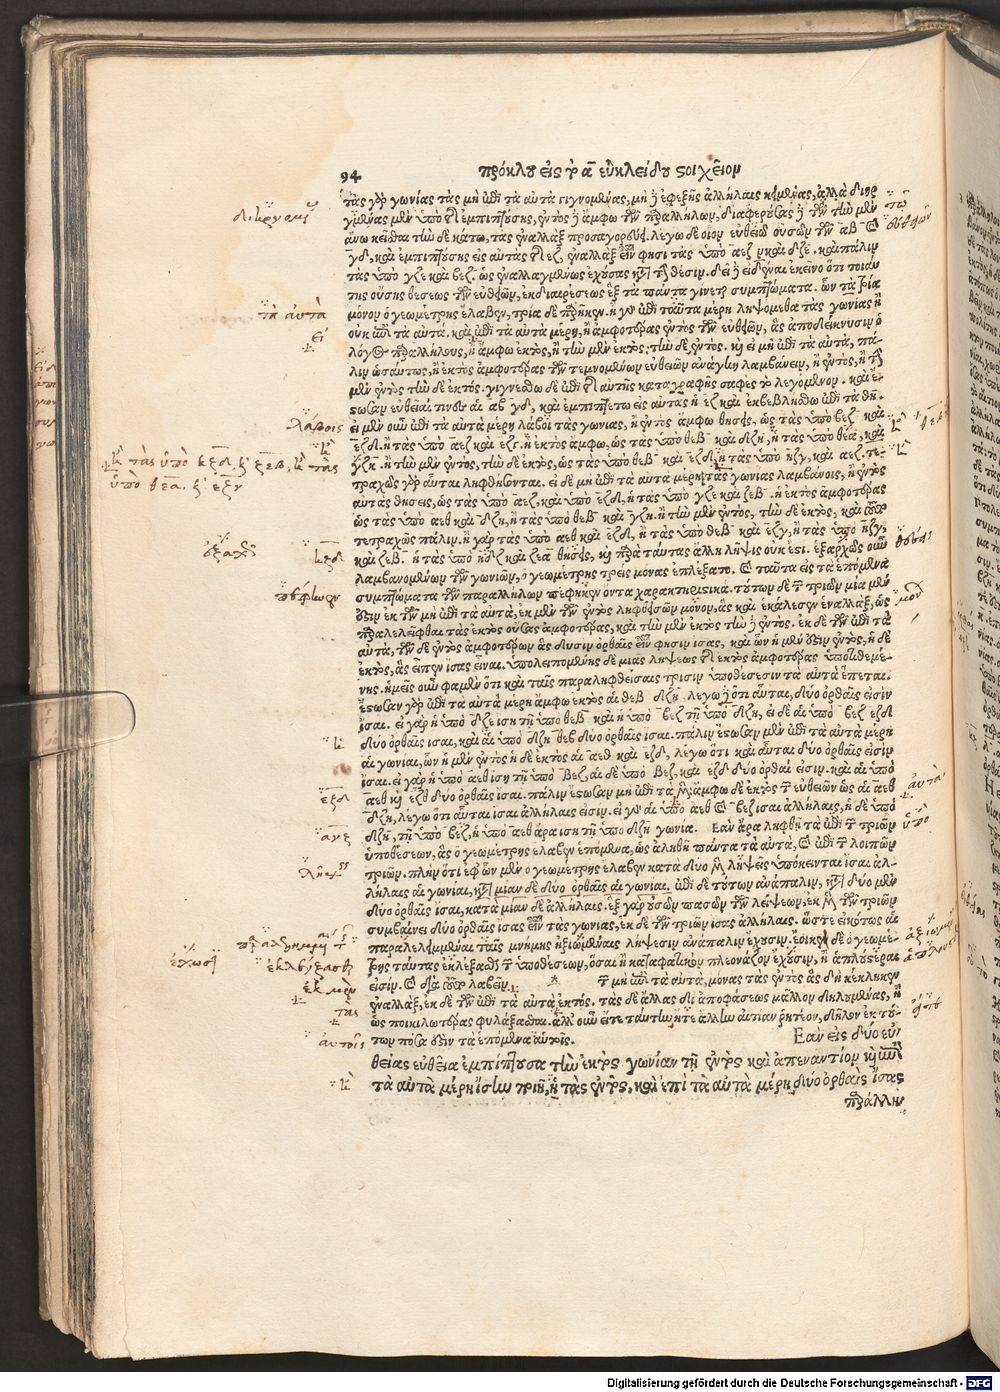 94 πρόκλου εἰς τὸ α εὐκλείδου στοιχεῖον
τὰς γὰρ γωνίας τὰς μὴ ἐπὶ τὰ αὐτὰ γιγνομένας, μὴ δὲ ἐφεξῆς ἀλλήλαις κειμένας, ἀλλὰ διῃρ
γμένας μὲν ὑπὸ τῆς ἐμπιπτούσης, ἐντὸς δὲ ἄμφω τῶν παραλλήλων, διαφερούσας δὲ τῷ τὴν μὲν
ἄνω κεῖσθαι τὴν δὲ κάτω, τὰς ἐναλλὰξ προσαγορεύει. λέγω δὲ οἷον εὐθειῶν οὐσῶν τῶν αβ καὶ
γδ, καὶ ἐμπιπτούσης εἰς αὐτὰς τῆς εζ, ἐναλλὰξ εἶναί φησι τὰς ὑπὸ αεζ καὶ δζε. καὶ πάλιν
τὰς ὑπὸ γζε καὶ βεζ. ὡς ἐναλλαγμένως ἐχούσας κατὰ τὴν θέσιν. δεῖ δὲ εἰδέναι ἐκεῖνο ὅτι τοιαύ
της οὔσης θέσεως τῶν εὐθειῶν, ἐκ διαιρέσεως ἓξ τὰ πάντα γίνεται συμπτώματα. ὧν τὰ τρία
μόνον ὁ γεωμέτρης ἔλαβεν, τρία δὲ παρῆκεν. ἢ γὰρ ἐπὶ ταῦτα μέρη ληψόμεθα τὰς γωνίας ἢ
οὐκ ἐπὶ τὰ αὐτά. καὶ ἐπὶ τὰ αὐτὰ μέρη, ἢ ἀμφοτέρας ἐντὸς τῶν εὐθειῶν, ἃς ἀποδείκνυσιν ὁ
λόγος παραλλήλους, ἢ ἄμφω ἐκτὸς, ἢ τὴν μὲν ἐκτὸς, τὴν δὲ ἐντός. καὶ εἰ μὴ ἐπὶ τὰ αὐτὰ, πά-
λιν ὡσαύτως, ἢ ἐκτὸς ἀμφοτέρας τῶν τεμνομένων εὐθειῶν ἀνάγκη λαμβάνειν, ἢ ἐντὸς, ἢ τὴν
μὲν ἐντὸς τὴν δὲ ἐκτός. γιγνέσθω δὲ ἐπὶ τῆς αὐτῆς καταγραφῆς σαφὲς τὸ λεγόμενον. καὶ ἔ-
στωσαν εὐθεῖαί τινες αἱ αβ γδ, καὶ ἐμπιπτέτω εἰς αὐτὰς ἡ εζ καὶ ἐκβεβλήσθω ἐπὶ τὰ θη.
εἰ μὲν οὖν ἐπὶ τὰ αὐτὰ μέρη λάβοι τὰς γωνίας, ἢ ἐντὸς ἄμφω θήσεις, ὡς τὰς ὑπὸ βεζ καὶ
εζδ. ἢ τὰς ὑπὸ αεζ καὶ εζγ. ἢ ἐκτὸς ἄμφω, ὡς τὰς ὑπὸ θεβ καὶ δζη, ἢ τὰς ὑπὸ θεα, καὶ
γζη. ἢ τὴν μὲν ἐντὸς, τὴν δὲ ἐκτὸς, ὡς τὰς ὑπὸ θεβ καὶ εζδ, ἢ τὰς ὑπὸ ηζγ, καὶ αεζ. τε-
τραχῶς γὰρ αὗται ληφθήσονται. εἰ δὲ μὴ ἐπὶ τὰ αὐτὰ μέρη τὰς γωνίας λαμβάνοις, ἢ ἐντὸς
αὐτὰς θήσεις, ὡς τὰς ὑπὸ αεζ, καὶ ὑπὸ εζδ, ἢ τὰς ὑπὸ γζε καὶ ζεβ. ἢ ἐκτὸς ἀμφοτέρας
ὡς τὰς ὑπὸ αεθ καὶ δζη, ἢ τὰς ὑπὸ θεβ καὶ γζη. ἢ τὴν μὲν ἐντὸς, τὴν δὲ ἐκτὸς, καὶ τοῦτο
τετραχῶς πάλιν. ἢ γὰρ τὰς ὑπὸ αεθ καὶ εζδ, ἢ τὰς ὑπὸ θεβ καὶ εζγ, ἢ τὰς ὑπὸ ηζγ,
καὶ ζεβ. ἢ τὰς ὑπὸ ηζδ καὶ ζεα θήσεις, καὶ παρὰ ταύτας ἄλλη λῆψις οὐκ ἔστι. ἑξαχῶς οὖν
λαμβανομένων τῶν γωνιῶν, ὁ γεωμέτρης τρεῖς μόνας ἐπελέξατο. καὶ ταῦτα εἰς τὰ ἑπόμενα
συμπτώματα τῶν παραλλήλων πέφηκεν ὄντα χαρακτηριστικά. τούτων δὲ τῶν τριῶν μία μέν
ἐστιν ἐκ τῶν μὴ ἐπὶ τὰ αὐτὰ, ἐκ μὲν τῶν ἐντὸς ληφθεισῶν μόνον, ἃς καὶ ἐκάλεσεν ἐναλλὰξ, ὡς
παραλελεῖφθαι τὰς ἐκτὸς οὔσας ἀμφοτέρας, καὶ τὴν μὲν ἐκτὸς τὴν δὲ ἐντός. ἐκ δὲ τῶν ἐπὶ τὰ
αὐτὰ, τῶν δὲ ἐντὸς ἀμφοτέρων ἃς δυσὶν ὀρθαῖς εἶναί φησιν ἴσας, καὶ ὧν ἡ μέν ἐστιν ἐντὸς, ἡ δὲ
ἐκτὸς, ἃς εἶπεν ἴσας εἶναι. ὑπολειπομένης δὲ μιᾶς λήψεως τῆς ἐκτὸς ἀμφοτέρας ὑποτιθεμέ-
νης. ἡμεῖς οὖν φαμὲν ὅτι καὶ ταῖς παραληφθείσαις τρισὶν ὑποθέσεσιν τὰ αὐτὰ ἕπεται.
ἔστωσαν γὰρ ἐπὶ τὰ αὐτὰ μέρη ἄμφω ἐκτὸς αἱ θεβ δζη. λέγω δὲ ὅτι αὗται, δύο ὀρθαῖς εἰσὶν
ἴσαι. εἰ γὰρ ἡ ὑπὸ δζε ἴση τῇ ὑπὸ θεβ καὶ ἡ ὑπὸ βεζ τῇ ὑπὸ δζη, εἰ δὲ αἱ ὑπὸ βεζ εζδ
δύο ὀρθαῖς ἴσαι, καὶ αἱ ὑπὸ δζη θεβ δύο ὀρθαῖς ἴσαι. πάλιν ἔστωσαν μὲν ἐπὶ τὰ αὐτὰ μέρη
αἱ γωνίαι, ὧν ἡ μὲν ἐντὸς ἡ δὲ ἐκτὸς αἱ αεθ καὶ εζδ, λέγω ὅτι καὶ αὗται δύο ὀρθαῖς εἰσὶν
ἴσαι. εἰ γὰρ ἡ ὑπὸ αεθ ἴση τῇ ὑπὸ βεζ, αἱ δὲ ὑπὸ βεζ, καὶ εζδ δύο ὀρθαί εἰσιν. καὶ αἱ ὑπὸ
αεθ καὶ εζδ δύο ὀρθαῖς ἴσαι. πάλιν ἔστωσαν μὴ ἐπὶ τὰ αὐτὰ ἄμφω δὲ ἐκτὸς τῶν εὐθειῶν ὡς αἱ αεθ
δζη, λέγω ὅτι αὗται ἴσαι ἀλλήλαις εἰσίν. εἰ γὰρ αἱ ὑπὸ αεθ καὶ βεζ ἴσαι ἀλλήλαις, ἡ δὲ ὑπὸ
δζη, τῇ ὑπὸ βεζ, ἡ ὑπὸ αεθ ἄρα ἴση τῇ ὑπὸ δζη γωνίᾳ. Ἐὰν ἄρα ληφθῇ τὰ ἐπὶ τῶν τριῶν
ὑποθέσεων, ἃς ὁ γεωμέτρης ἔλαβεν ἑπόμενα, ὡς ἀληθῆ πάντα τὰ αὐτὰ, καὶ ἐπὶ τῶν λοιπῶν
τριῶν. πλὴν ὅτι ἐφ᾽ ὧν μὲν ὁ γεωμέτρης ἔλαβεν κατὰ δύο μὲν λήψεις ὑπόκεινται ἴσαι ἀλ-
λήλαις αἱ γωνίαι, κατὰ μίαν δὲ δύο ὀρθαῖς αἱ γωνίαι. ἐπὶ δὲ τούτων ἀνάπαλιν, κατὰ δύο μὲν
δύο ὀρθαῖς ἴσαι, κατὰ μίαν δὲ ἀλλήλαις. ἓξ γὰρ οὐσῶν πασῶν τῶν λείψεων, ἐκ μὲν τῶν τριῶν
συμβαίνει δύο ὀρθαῖς ἴσας εἶναι τὰς γωνίας, ἐκ δὲ τῶν τριῶν ἴσας ἀλλήλαις. ὥστε εἰκότως αἱ
παραλελειμμέναι ταῖς μνήμης ἠξιωμέναις λήψεσιν ἀνάπαλιν ἔχουσιν. ἔοικεν δὲ ὁ γεωμέ-
τρης ταύτας ἐκλέξασθαι τῶν ὑποθέσεων, ὅσαι ἢ καταφατικὸν πλεονάζον ἔχουσιν, ἢ ἁπλούστεραι
εἰσίν. καὶ διὰ τοῦτο λαβεῖν. τῶν μὴ ἐπὶ τὰ αὐτὰ, μόνας τὰς ἐντὸς ἃς δὴ κέκληκεν
ἐναλλὰξ, ἐκ δὲ τῶν ἐπὶ τὰ αὐτὰ ἐκτός. τὰς δὲ ἄλλας δι᾽ ἀποφάσεως μᾶλλον δηλουμένας, ἢ
ὡς ποικιλωτέρας φυλάξασθαι. ἀλλ᾽ οὖν εἴτε ταύτην εἴτε ἄλλην αἰτίαν ῥητέον, δῆλον ἐκ τού-
των πόσα ἐστὶν τὰ ἑπόμενα αὐτοῖς. Ἐὰν εἰς δύο εὐ
θείας εὐθεῖα ἐμπίπτουσα τὴν ἐκτὸς γωνίαν τῇ ἐντὸς καὶ ἀπεναντίον καὶ ἐπὶ
τὰ αὐτὰ μέρη ἴσην ποιῇ, ἢ τὰς ἐντὸς, καὶ ἐπὶ τὰ αὐτὰ μέρη δύο ὀρθαῖς ἴσας
παραλλη
τὰ αὐτὰ
λάβοις
κ τὰς ὑπὸ κζδ. κ ζεβ, κ τὰς
ὑπὸ θεα. κ εζγ
εζδ
ἐκ μὲν
τὰς
αὐτοῖς
αὐτὰ
ὑπὸ
Digitalisierung gefördert durch die Deutsche Forschungsgemeinschaft - DFG